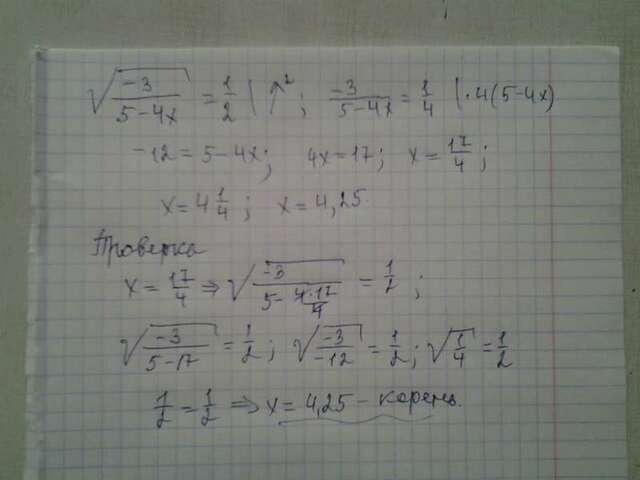 √(-3/(5-4x)) = 1/2 | ↑²; -3/(5-4x) = 1/4 | ·4(5-4x)
-12 = 5-4x; 4x = 17; x = 17/4;
x = 4 1/4; x = 4,25.
Проверка
x = 17/4 ⇒ √(-3/(5-4·17/4)) = 1/2;
√(-3/(5-17)) = 1/2; √(-3/-12) = 1/2; √(1/4) = 1/2
1/2 = 1/2 ⇒ x = 4,25 – корень.